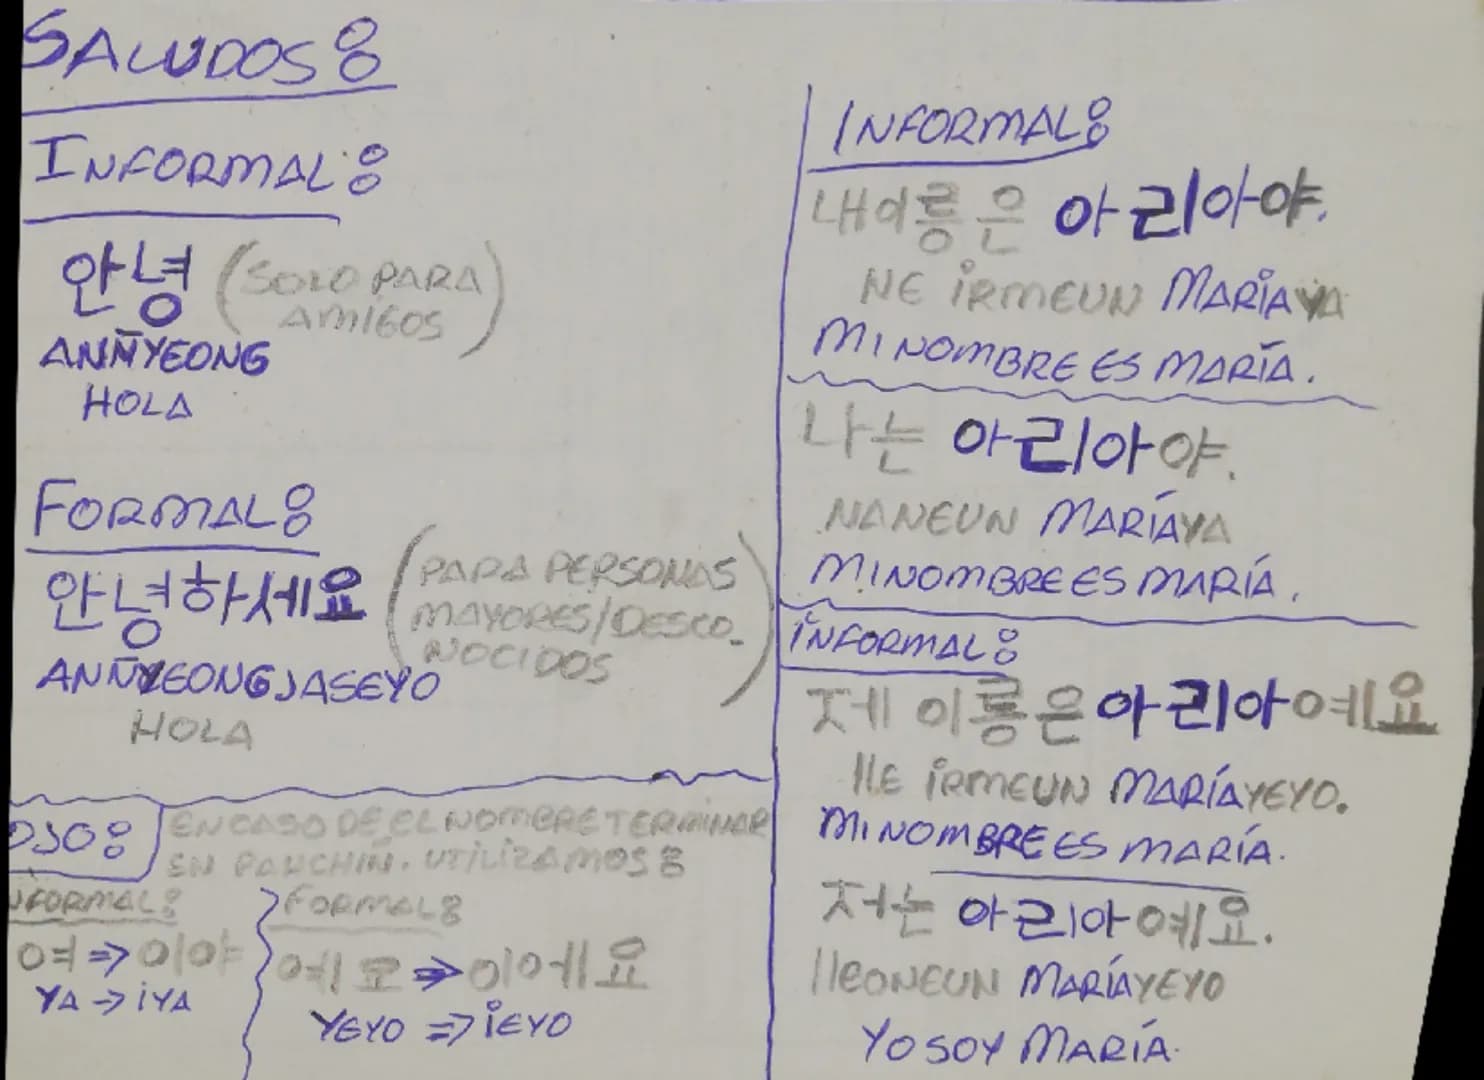 SALUDOS:
INFORMAL:
안녕 (SOLO PARA
AMIGOS)
ANÑYEONG
HOLA
FORMAL:
안녕하세요 (PARA PERSONAS
MAYORES/DESCO-
NOCIDOS)
ANÑYEONGJASEYO
HOLA
OJO: EN CASO DE EL NOMBRE TERMINAR
EN PANCHIN. UTILIZAMOS:
INFORMAL:
여 => 이야
YA -> IYA
FORMAL:
예요 => 이에요
YEYO => IEYO
INFORMAL:
내이름은 아리아야.
NE IRMEUN MARÍAYA
MI NOMBRE ES MARÍA.
나는 아리아야.
NANEUN MARÍAYA
MI NOMBRE ES MARÍA.
INFORMAL:
제 이름은 아리아예요
LLE IRMEUN MARÍAYEYO.
MI NOMBRE ES MARÍA.
저는 아리아예요.
LLEONEUN MARÍAYEYO
YO SOY MARÍA.